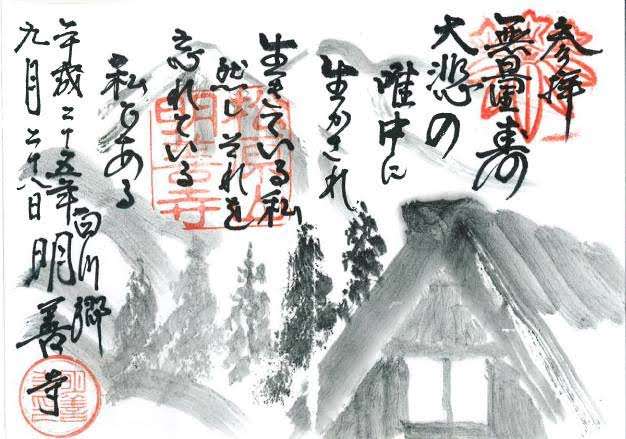 参拝
無量寿
大悲の
唯中に
生かされ
生きている私
然しそれを
忘れている
私もある
平成二十五年
九月二十八日
白川郷
明善寺
明善寺